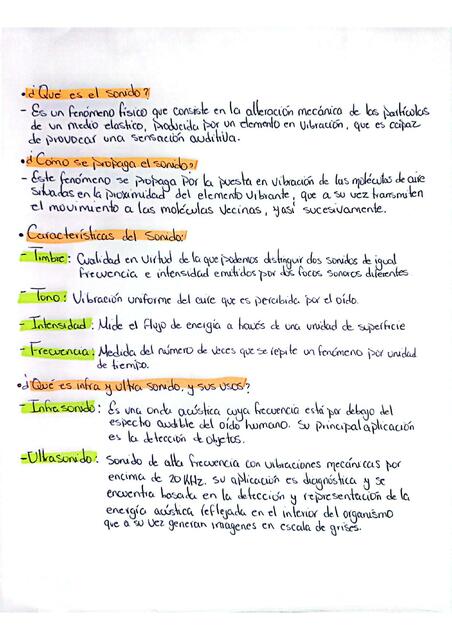 • ¿Qué es el sonido?
- Es un fenómeno físico que consiste en la alteración mecánica de las partículas
de un medio elastico, producida por un elemento en vibración, que es capaz
de provocar una sensación auditiva.
• ¿Cómo se propaga el sonido?
- Este fenómeno se propaga por la puesta en vibración de las moléculas de aire
situadas en la proximidad del elemento vibrante, que a su vez transmiten
el movimiento a las moléculas vecinas, y así sucesivamente.
• Características del Sonido:
- Timbre: Cualidad en virtud de la que podemos distinguir dos sonidos de igual
frecuencia e intensidad emitidos por dos focos sonoros diferentes
- Tono: Vibración uniforme del aire que es percibida por el oído.
- Intensidad: Mide el flujo de energía a través de una unidad de superficie
- Frecuencia: Medida del número de veces que se repite un fenómeno por unidad
de tiempo.
• ¿Qué es infra y ultra sonido, y sus usos?
- Infrasonido: Es una onda acústica cuya frecuencia está por debajo del
espectro audible del oído humano. Su principal aplicación
es la detección de objetos.
- Ultrasonido: Sonido de alta frecuencia con vibraciones mecánicas por
encima de 20 KHz. su aplicación es diagnóstica y se
encuentra basada en la detección y representación de la
energía acústica reflejada en el interior del organismo
que a su vez generan imágenes en escala de grises.